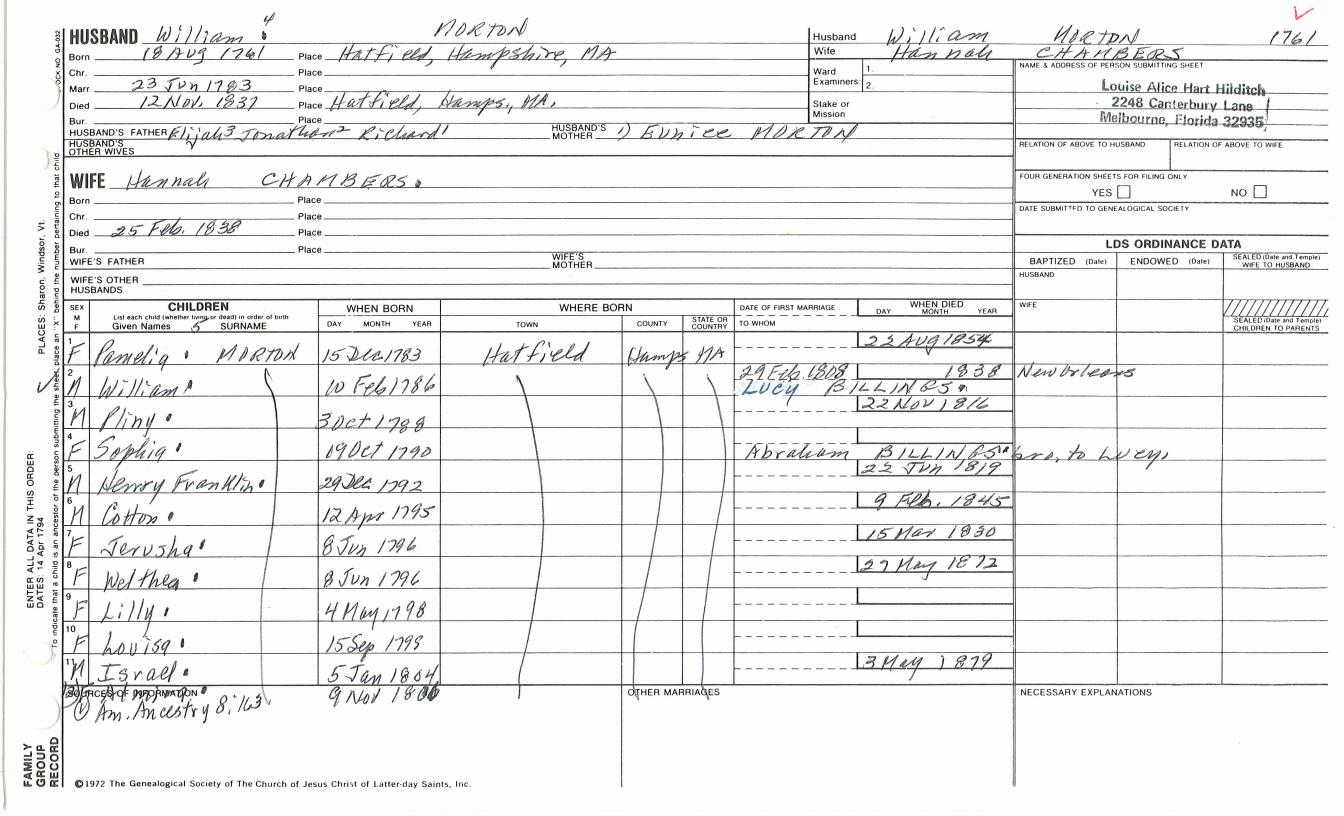 HUSBAND William 4 MORTON
Born 18 AUG 1761 Place Hatfield, Hampshire, MA
Chr. Place
Marr 23 Jun 1783 Place
Died 12 Nov. 1837 Place Hatfield, Hamps, MA.
Bur. Place
HUSBAND'S FATHER Elijah3 Jonathan2 Richard1 HUSBAND'S MOTHER 1) Eunice MORTON
HUSBAND'S OTHER WIVES
WIFE Hannah CHAMBERS.
Born Place
Chr. Place
Died 25 Feb. 1838 Place
Bur. Place
WIFE'S FATHER WIFE'S MOTHER
WIFE'S OTHER HUSBANDS
Husband William MORTON 1761
Wife Hannah CHAMBERS
Ward Examiners 1.
2.
Stake or Mission
NAME & ADDRESS OF PERSON SUBMITTING SHEET
Louise Alice Hart Hilditch
2248 Canterbury Lane
Melbourne, Florida 32935
RELATION OF ABOVE TO HUSBAND RELATION OF ABOVE TO WIFE
FOUR GENERATION SHEETS FOR FILING ONLY
YES NO
DATE SUBMITTED TO GENEALOGICAL SOCIETY
LDS ORDINANCE DATA
BAPTIZED (Date) ENDOWED (Date) SEALED (Date and Temple) WIFE TO HUSBAND
HUSBAND
WIFE
SEALED (Date and Temple) CHILDREN TO PARENTS
SEX M F CHILDREN WHEN BORN WHERE BORN DATE OF FIRST MARRIAGE WHEN DIED
List each child (whether living or dead) in order of birth
Given Names 5 SURNAME DAY MONTH YEAR TOWN COUNTY STATE OR COUNTRY TO WHOM DAY MONTH YEAR
1 F Pamelia MORTON 15 Dec 1783 Hatfield Hamps MA 22 AUG 1854
2 M William 10 Feb 1786 29 Feb. 1808 1838 New Orleans
LUCY BILLINGS
3 M Pliny 3 Oct 1788 22 Nov 1816
4 F Sophia 19 Oct 1790 Abraham BILLINGS bro. to Lucy.
5 M Henry Franklin 29 Dec 1792 22 Jun 1819
6 M Cotton 12 Apr 1795 9 Feb. 1845
7 F Jerusha 8 Jun 1796 15 Mar 1830
8 F Welthea 8 Jun 1796 27 May 1872
9 F Lilly 4 May 1798
10 F Louisa 15 Sep 1799
11 M Israel 5 Jan 1804 3 May 1879
9 Nov 1806
SOURCES OF INFORMATION OTHER MARRIAGES NECESSARY EXPLANATIONS
① Am. Ancestry 8:163
©1972 The Genealogical Society of The Church of Jesus Christ of Latter-day Saints, Inc.
FAMILY GROUP RECORD
ENTER ALL DATA IN THIS ORDER:
DATES: 14 Apr 1794
PLACES: Sharon, Windsor, Vt.
To indicate that a child is an ancestor of the person submitting the sheet, place an "X" behind the number pertaining to that child